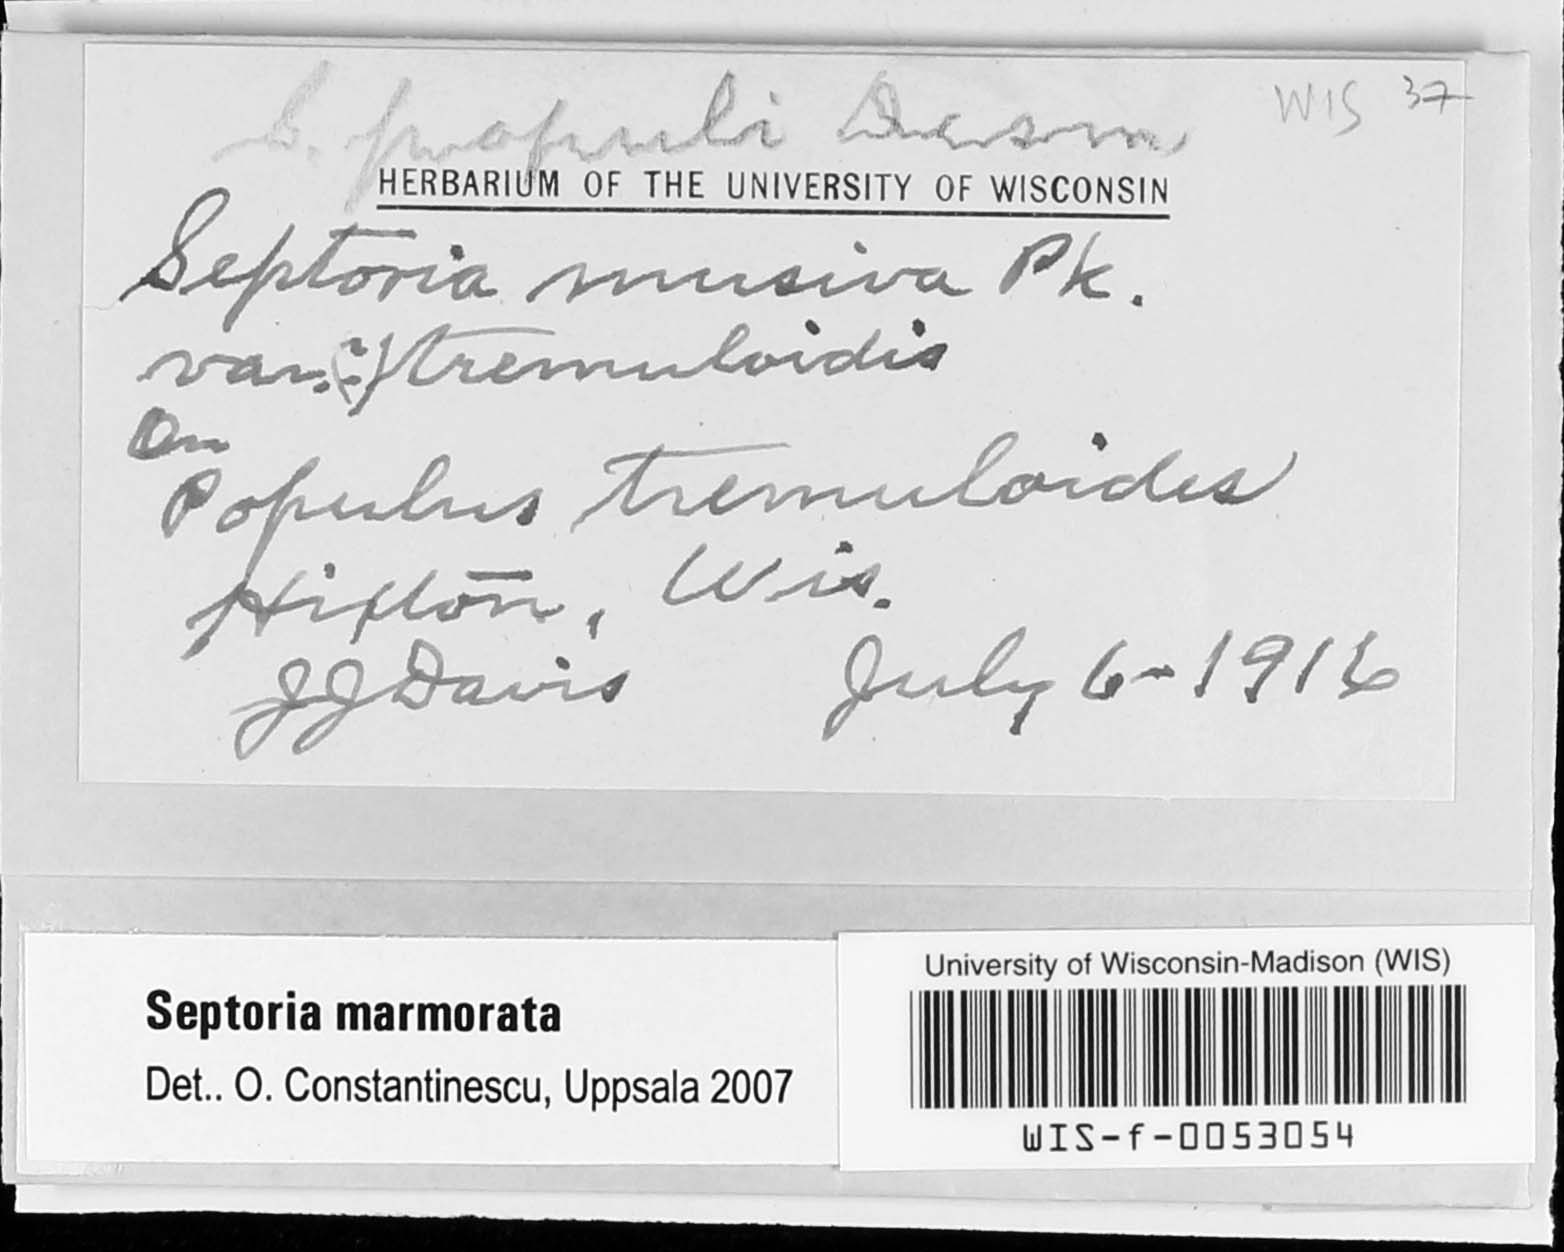 S. populi Desm
WIS 37
HERBARIUM OF THE UNIVERSITY OF WISCONSIN
Septoria musiva Pk.
var.(?) tremuloidis
On
Populus tremuloides
Hixton, Wis.
JJ Davis July 6-1916
Septoria marmorata
Det.. O. Constantinescu, Uppsala 2007
University of Wisconsin-Madison (WIS)
WIS-f-0053054